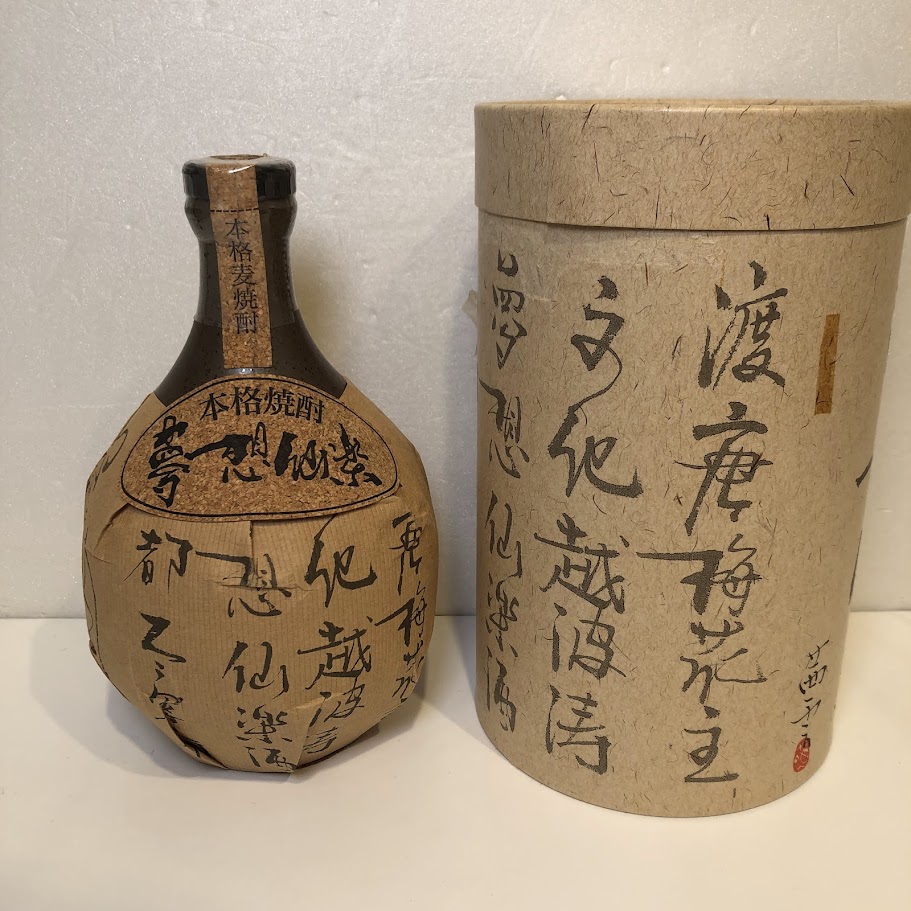 本格麦焼酎
本格焼酎
夢想仙楽
唐梅花
紀越波涛
想仙楽酒
都
渡唐梅花主
文紀越波涛
夢想仙楽酒